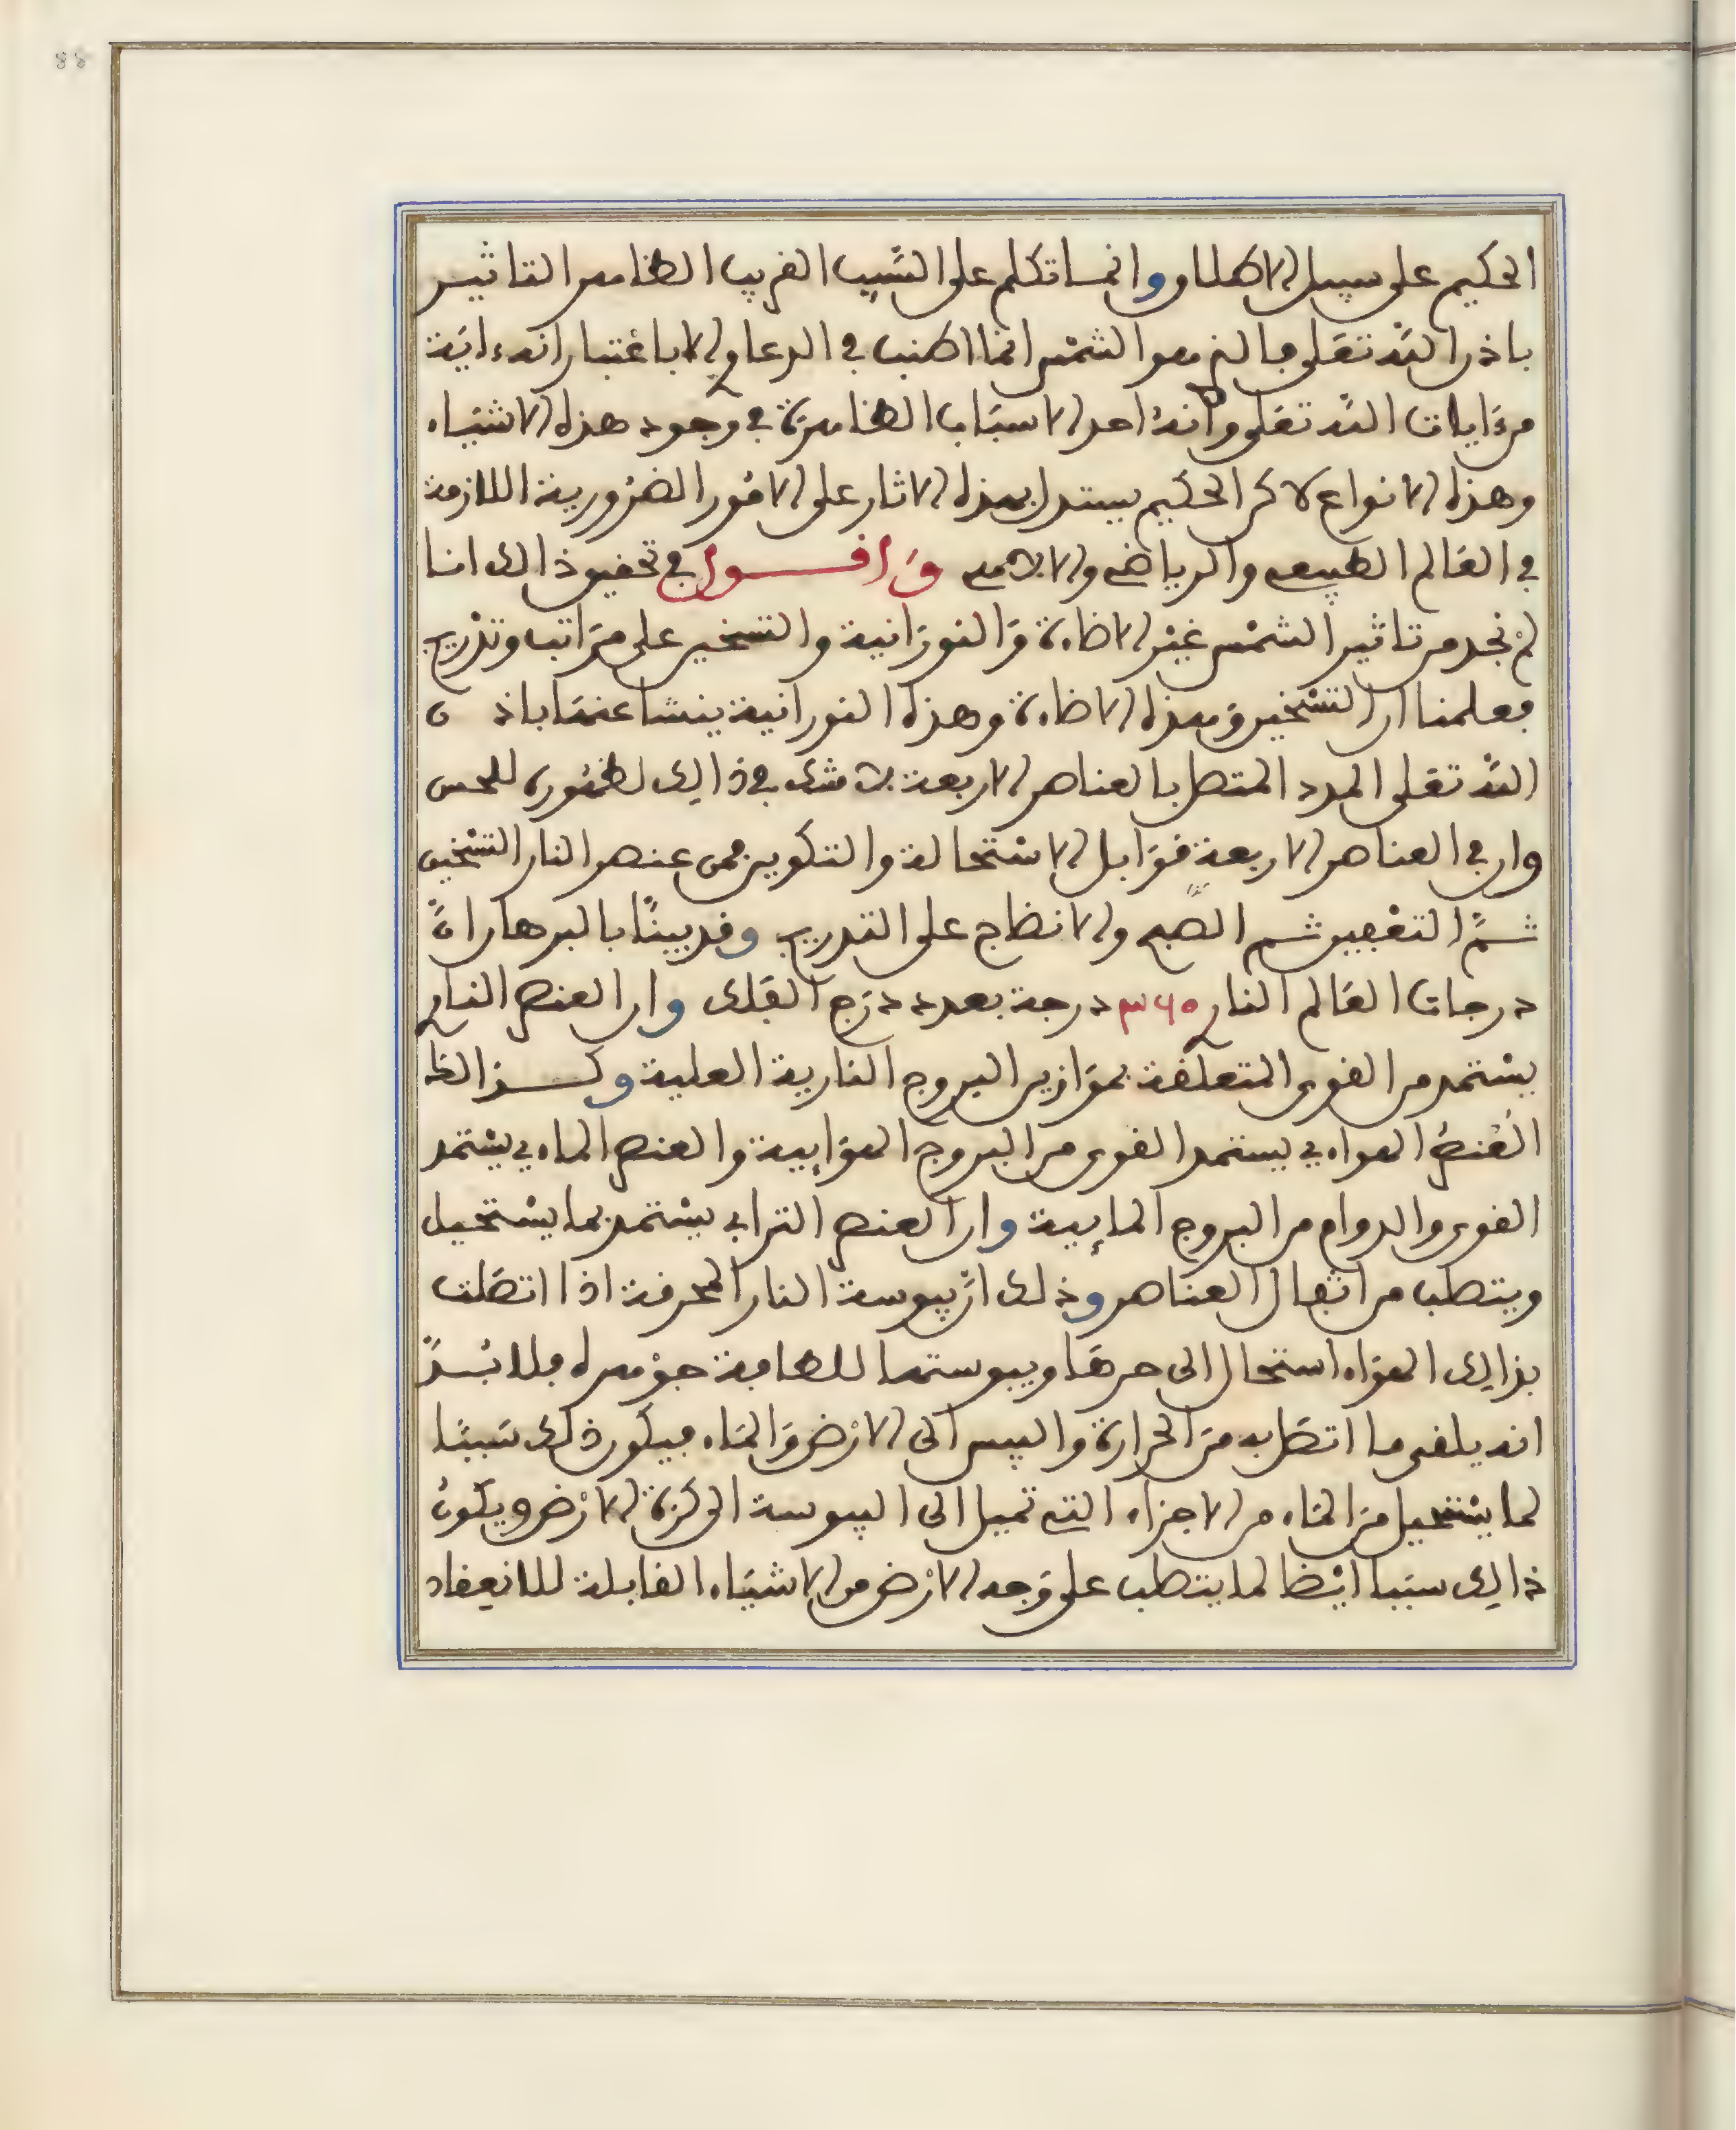 88
الحكيم على سبيل الاطلاق وانما تكلم على السبب القريب الظاهر التاثير
باذن الله تعلى فالنرهو الشمس انما اطنب في الدعاوي لا باعتبار انه ءاية
من ءايات الله تعلى وانه احد الاسباب الظاهرة في وجود هذه الاشياء
وهذه الانواع لاكن الحكيم يستدل بهذه الاثار على الامور الضرورية اللازمة
في العالم الطبيعي والرياضي والالاهي وَاقول في تحقيق ذالك انا
لم نجد من تاثير الشمس غير الاضاءة والنورانية والتسخين على مراتب وتدريج
فعلمنا ان التسخين وهذه الاضاءة وهذه النورانية ينشا عنها باذن
الله تعلى المدد المتصل بالعناصر الاربعة بلا شك في ذالك لظهوره للحس
وان في العناصر الاربعة قوابل الاستحالة والتكوين فمن عنصر النار التسخين
ثم التعفين ثم الصبغ والانضاج على التدريج وقد بينا بالبرهان ان
درجات العالم الناري ٣٦٥ درجة بعدد درج الفلك وان العنصر الناري
يستمد من القوى المتعلقة بموازين البروج النارية العلية وكذالك
العنصر الهواءي يستمد القوى من البروج الهوايية والعنصر الماءي يستمد
القوى والدوام من البروج المايية وان العنصر الترابي يستمد بما يستحيل
ويتطلب من اثفال العناصر وذلك ان يبوسة النار المحرقة اذا اتصلت
بذالك الهواء استحال الى حرها ويبوستها للطافة جوهره فلا بد
انه يلقي ما اتصل به من الحرارة واليبس الى الارض والماء فيكون ذلك سببا
لما يستحيل من الماء من الاجزاء التي تميل الى اليبوسة الى كرة الارض ويكون
ذالك سببا ايضا لما يتطلب على وجه الارض من الاشياء القابلة للانعقاد